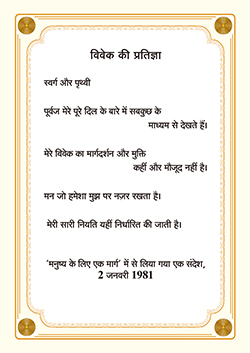 विवेक की प्रतिज्ञा
स्वर्ग और पृथ्वी
पूर्वज मेरे पूरे दिल के बारे में सबकुछ के
माध्यम से देखते हैं।
मेरे विवेक का मार्गदर्शन और मुक्ति
कहीं और मौजूद नहीं है।
मन जो हमेशा मुझ पर नज़र रखता है।
मेरी सारी नियति यहीं निर्धारित की जाती है।
‘मनुष्य के लिए एक मार्ग’ में से लिया गया एक संदेश,
2 जनवरी 1981